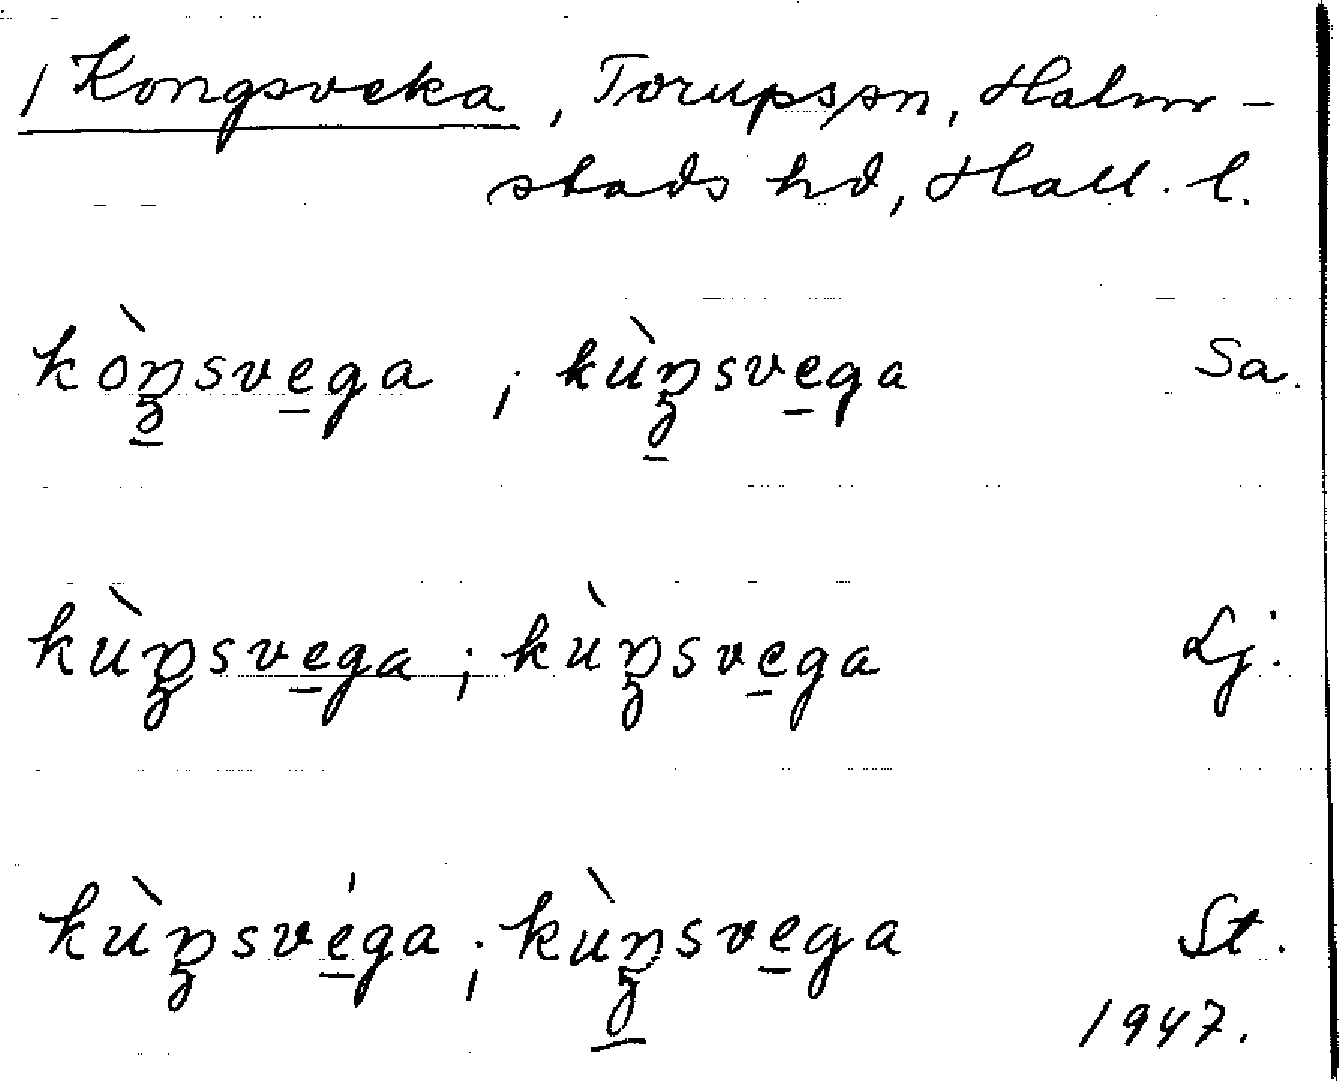 /Kongsveka, Torups sn, Halm-
stads hd, Hall. l.
kòŋsvega ; kùŋsvega Sa.
kùŋsvega ; kùŋsvega Lj.
kùŋsvéga ; kùŋsvega St.
1947.